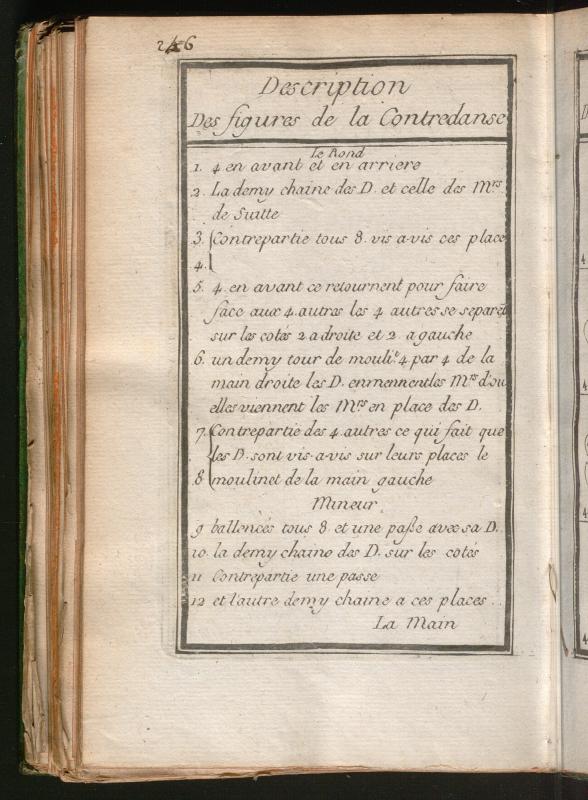 246
Description
Des figures de la Contredanse
Le Rond
1. 4 en avant et en arriere
2. La demy chaine des D. et celle des Mrs.
de Suitte
3. Contrepartie tous 8. vis a-vis ces place
4.
5. 4. en avant ce retournent pour faire
face aux 4. autres les 4 autres se separẽt
sur les cotés 2 a droite et 2. a gauche
6. un demy tour de mouli.e 4 par 4 de la
main droite les D. enmennent les Mrs d'ou
elles viennent les Mrs en place des D.
7. Contrepartie des 4. autres ce qui fait que
les D. sont vis-a-vis sur leurs places le
8 moulinet de la main gauche
Mineur
9 ballencés tous 8. et une paße avec sa D.
10. la demy chaine des D. sur les cotés
11 Contrepartie une passe
12 et l'autre demy chaine a ces places..
La Main